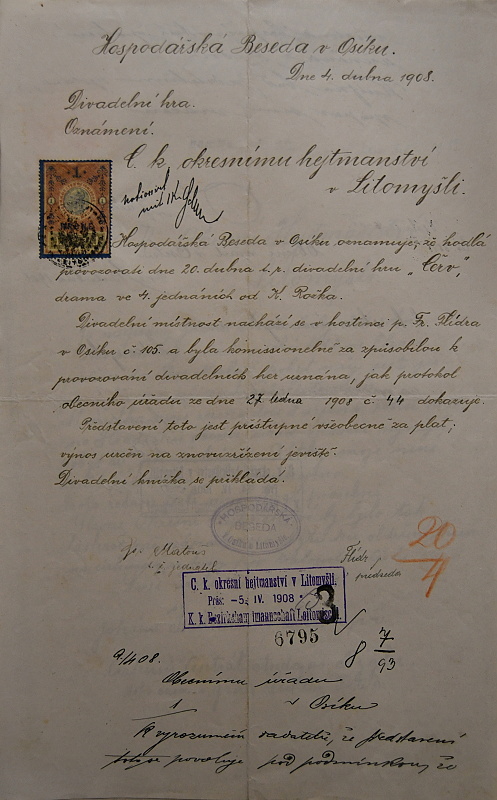 Hospodářská Beseda v Osíku.
Dne 4. dubna 1908.
Divadelní hra.
Oznámení.
C. k. okresnímu hejtmanství
v Litomyšli.
1
Hospodářská Beseda v Osíku oznamuje, že hodlá
provozovati dne 20. dubna t. r. divadelní hru „Červ“,
drama ve 4. jednáních od K. Rožka.
Divadelní místnost nachází se v hostinci p. Fr. Flídra
v Osíku č. 105. a byla komissionelně za způsobilou k
provozování divadelních her uznána, jak protokol
obecního úřadu ze dne 27 ledna 1908 č. 44 dokazuje.
Představení toto jest přístupné všeobecně za plat;
výnos určen na znovuzřízení jeviště.
Divadelní knížka se přikládá.
HOSPODÁŘSKÁ
BESEDA
Matouš
t. č. jednatel
Flídr
předseda
20
4
C. k. okresní hejtmanství v Litomyšli.
Präs: -5. IV. 1908
K. k. Bezirkshauptmannschaft Leitomischl
3
6795
8 7
93
9/4 08.
Obecnímu úřadu
v Osíku
k vyrozumění žadatele, že představení
toto se povoluje pod podmínkou, že